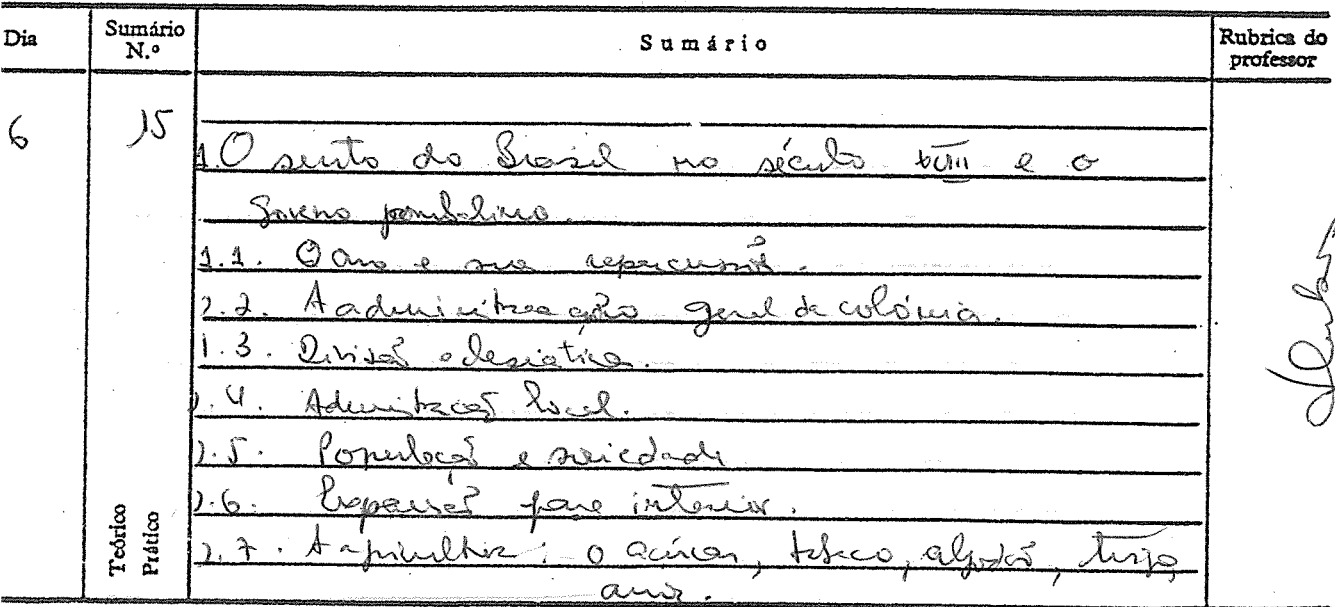 Dia Sumário N.º Sumário Rubrica do professor
6 15
1. O surto do Brasil no século XVIII e o
Governo pombalino.
1.1. O ouro e sua repercussão.
1.2. A administração geral da colónia.
1.3. Divisão eclesiástica.
1.4. Administração local.
1.5. População e sociedade
1.6. Expansão para interior.
1.7. A agricultura: o açúcar, tabaco, algodão, trigo,
arroz.
Teórico
Prático